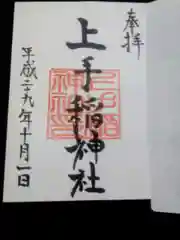 奉拝
上手稲神社
平成二十九年十月一日